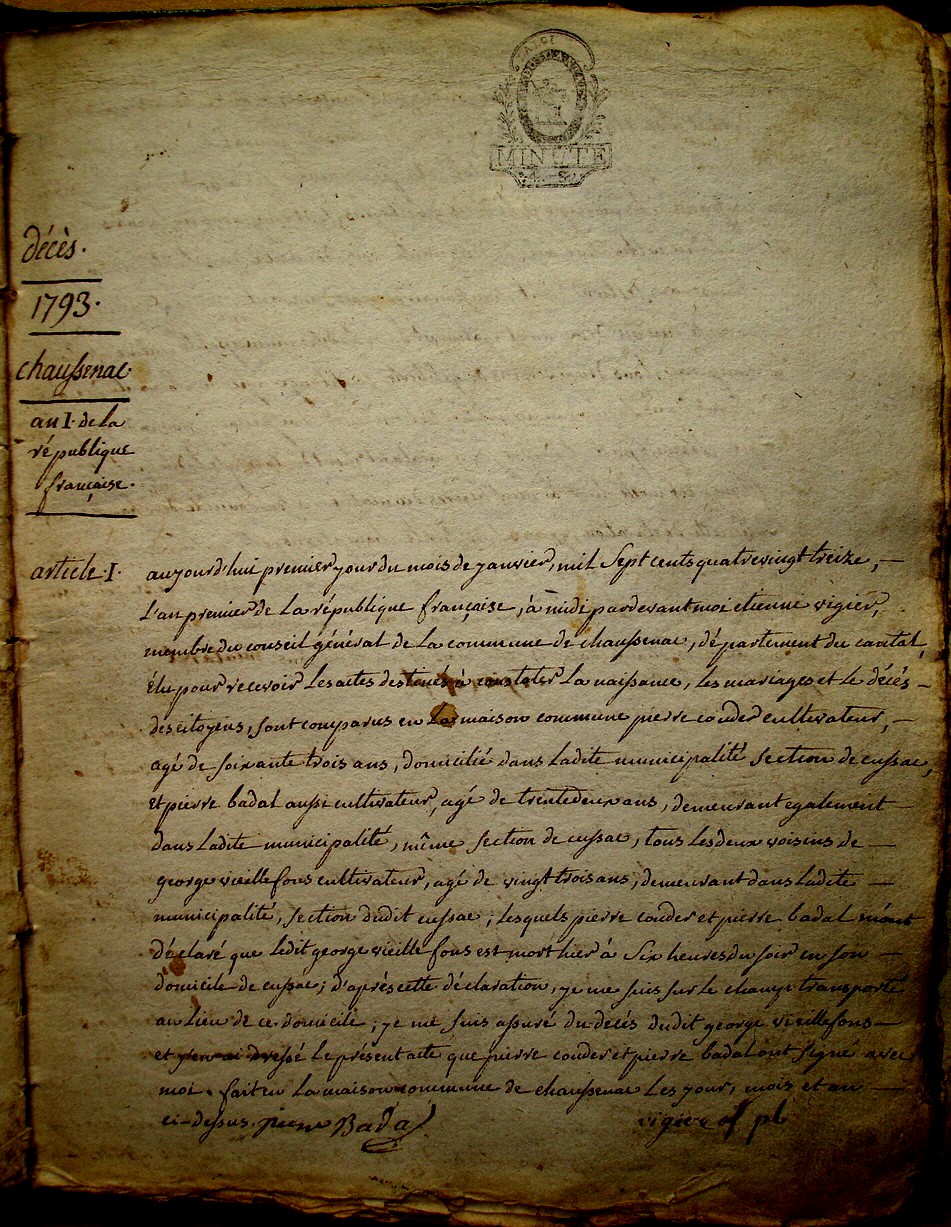 LA LOI
MINUTE
4. S.
décès.
1793.
chaussenac.
an I. de la
république
française.
article I.
aujourd'hui premier jour du mois de janvier, mil sept cents quatrevingt treize, —
L'an premier de la république française, à midi pardevant moi etienne vigier,
membre du conseil général de la commune de chaussenac, département du cantal,
élu pour recevoir les actes destinés à constater la naissance, les mariages et le décès —
des citoyens, sont comparus en la maison commune pierre couder cultivateur, —
agé de soixante trois ans, domicilié dans ladite municipalité section de cussac,
et pierre badal aussi cultivateur, agé de trente deux ans, demeurant egalement —
dans ladite municipalité, même section de cussac, tous les deux voisins de —
george vieillefons cultivateur, agé de vingt trois ans, demeurant dans ladite —
municipalité, section dudit cussac; lesquels pierre couder et pierre badal m'ont
déclaré que ledit george vieille fons est mort hier à six heures du soir en son —
domicile de cussac; d'après cette déclaration, je me suis sur le champ transporté
au lieu de ce domicile; je me suis assuré du decés dudit george vieillefons —
et j'en ai dressé le présent acte que pierre couder et pierre badal ont signé avec
moi. fait en la maison commune de chaussenac les jour, mois et an —
ci-dessus. pierre Badal vigier of pb